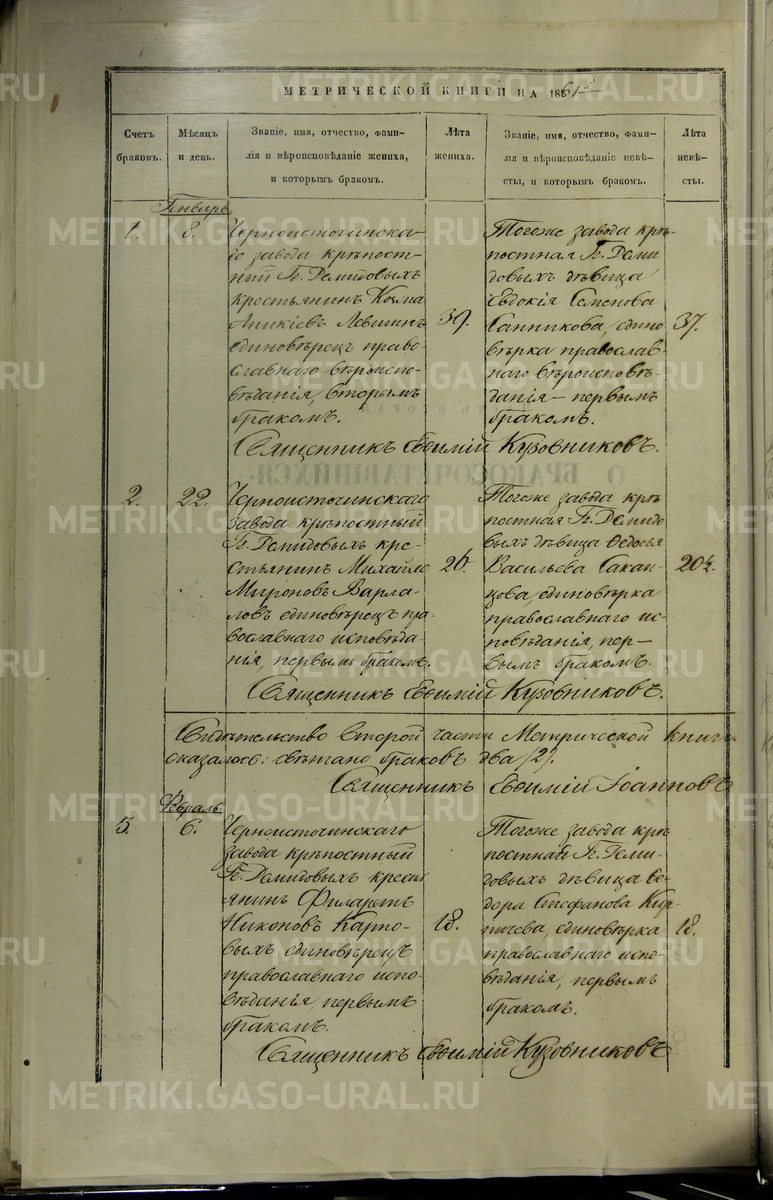 МЕТРИЧЕСКОЙ КНИГИ НА 1861й
Счетъ
браковъ.
Мѣсяцъ
и день.
Званіе, имя, отчество, фами-
лія и вѣроисповѣданіе жениха,
и которымъ бракомъ.
Лѣта
жениха.
Званіе, имя, отчество, фами-
лія и вѣроисповѣданіе невѣ-
сты, и которымъ бракомъ.
Лѣта
невѣ-
сты.
Январь
1.
8.
Черноисточинска-
го завода крѣпост-
ный Гг. Демидовыхъ
крестьянинъ Козма
Аникіевъ Левшинъ
единовѣрецъ право-
славнаго вѣроиспо-
вѣданія, вторымъ
бракомъ.
39.
Тогоже завода крѣ-
постная Гг. Деми-
довыхъ дѣвица
Евдокія Семенова
Санникова, едино
вѣрка православ-
наго вѣроисповѣ-
данія – первымъ
бракомъ.
37.
Священникъ Евѳимій Кузовниковъ.
2.
22.
Черноисточинскаго
завода крѣпостный
Гг. Демидовыхъ кре-
стьянинъ Михайло
Мироновъ Варла-
ковъ единовѣрецъ пра-
вославнаго исповѣда-
нія, первымъ бракомъ.
26.
Тогоже завода крѣ-
постная Гг. Демидо-
выхъ дѣвица Ѳедосья
Васильева Сакан-
цова, единовѣрка
православнаго ис-
повѣданія, пер-
вымъ бракомъ.
20½.
Священникъ Евѳимій Кузовниковъ.
Свидѣтельство второй части Метрической книги
оказалось: свѣнчано браковъ два /2/.
Священникъ Евѳимій Іоанновъ
Февраль
6.
Черноисточинскаго
завода крѣпостный
Гг. Демидовыхъ кресть
янинъ Филаретъ
Никоновъ Карпо-
выхъ единовѣрецъ
православнаго испо-
вѣданія первымъ
бракомъ.
18.
Тогоже завода крѣ
постная Гг. Деми-
довыхъ дѣвица Ѳе-
дора Стефанова Кир-
пичева, единовѣрка
православнаго испо-
вѣданія, первымъ
бракомъ.
18.
Священникъ Евѳимій Кузовниковъ
METRIKI.GASO-URAL.RU